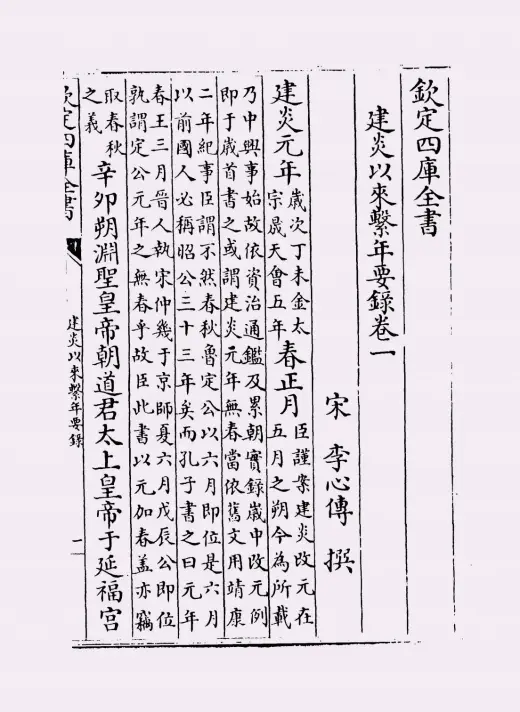 欽定四庫全書
建炎以來繫年要錄卷一
宋 李心傳 撰
建炎元年歲次丁未金太宗晟天會五年春正月臣謹案建炎改元在五月之朔今為所載
乃中興事始故依資治通鑑及累朝實錄歲中改元例
即于歲首書之或謂建炎元年無春當依舊文用靖康
二年紀事臣謂不然春秋魯定公以六月即位是六月
以前國人必稱昭公三十三年矣而孔子書之曰元年
春王三月晉人執宋仲幾于京師夏六月戊辰公即位
孰謂定公元年之無春乎故臣此書以元加春蓋亦竊
取春秋之義 辛卯朔淵聖皇帝朝道君太上皇帝于延福宮
欽定四庫全書
建炎以來繫年要錄
一